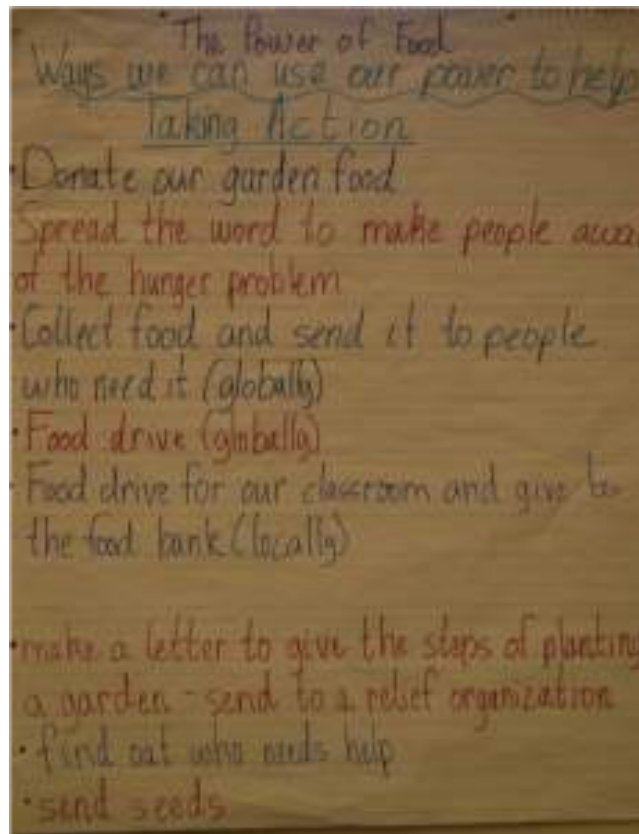 The Power of Food
Ways we can use our power to help
Taking Action
• Donate our garden food
Spread the word to make people
of the hunger problem
• Collect food and send it to people
who need it (globally)
• Food drive (globally)
• Food drive for our classroom and give to
the food bank (locally)
• make a letter to give the steps of planting
a garden - send to a relief organization
• find out who needs help
• send seeds